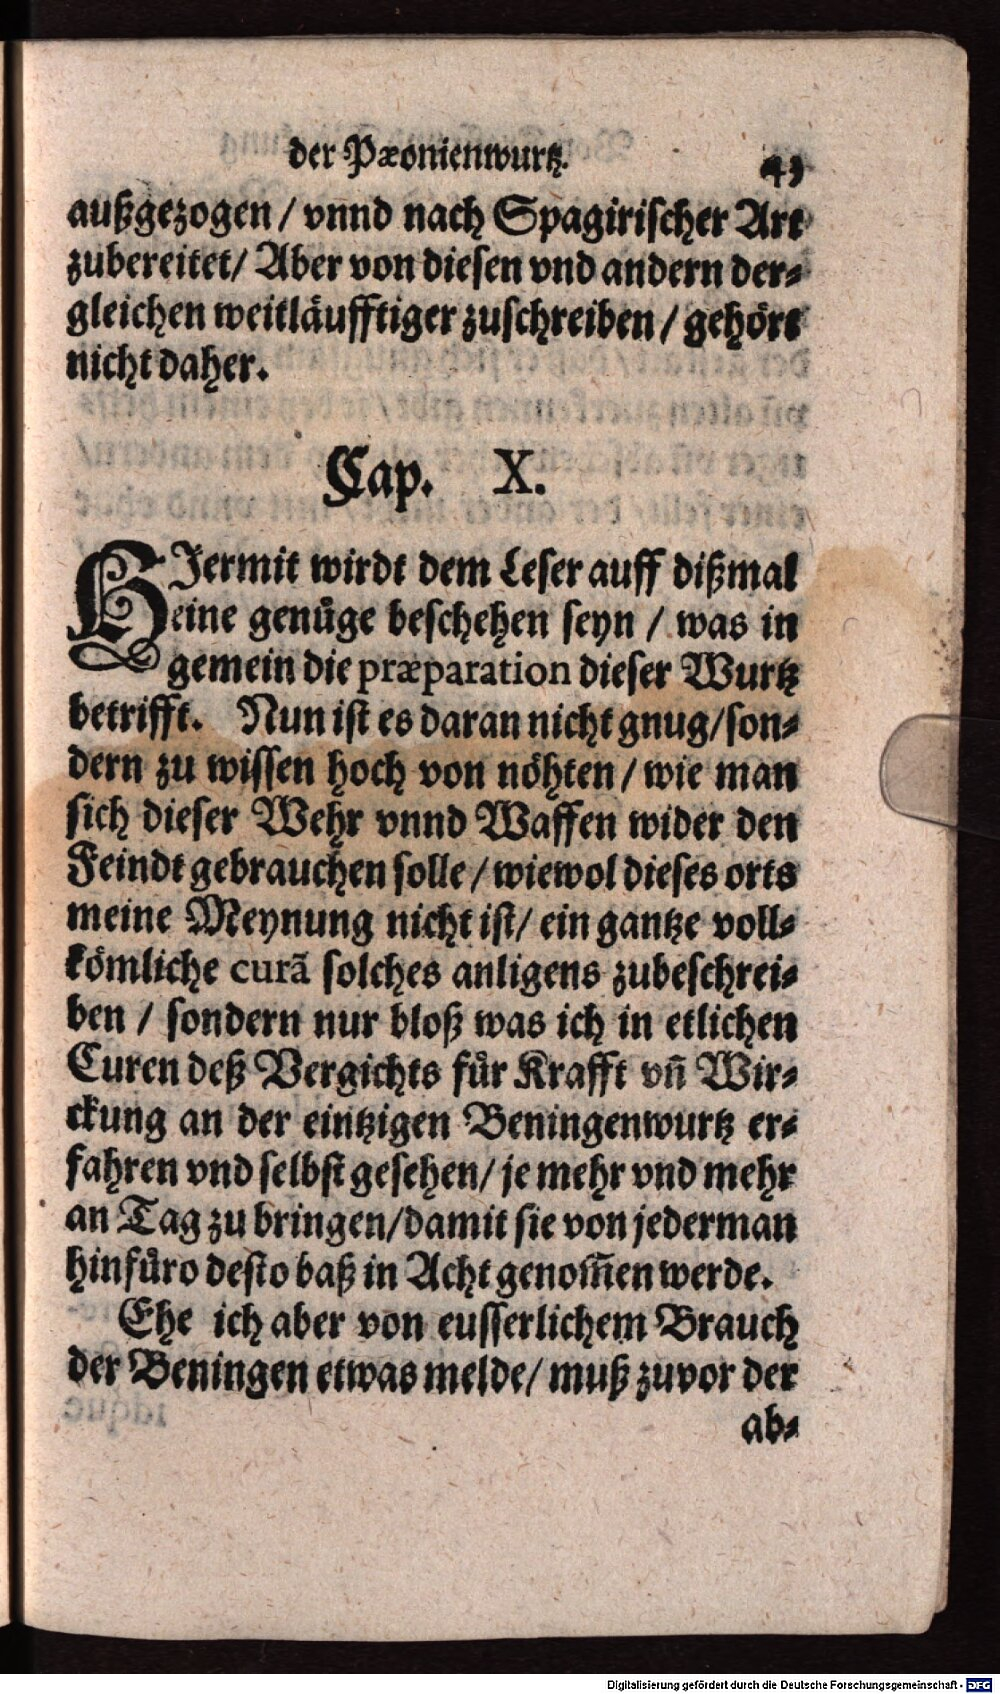 der Pæonienwurtz. 43
außgezogen / vnnd nach Spagirischer Art
zubereitet/ Aber von diesen vnd andern der-
gleichen weitläufftiger zuschreiben / gehört
nicht daher.
Cap. X.
HIermit wirdt dem Leser auff dißmal
eine genuͤge beschehen seyn / was in
gemein die præparation dieser Wurtz
betrifft. Nun ist es daran nicht gnug/son-
dern zu wissen hoch von nöhten / wie man
sich dieser Wehr vnnd Waffen wider den
Feindt gebrauchen solle / wiewol dieses orts
meine Meynung nicht ist/ ein gantze voll-
kömliche curã solches anligens zubeschrei-
ben / sondern nur bloß was ich in etlichen
Curen deß Vergichts fuͤr Krafft vn̄ Wir-
ckung an der eintzigen Beningenwurtz er-
fahren vnd selbst gesehen/ je mehr vnd mehr
an Tag zu bringen/damit sie von jederman
hinfuͤro desto baß in Acht genom̄en werde.
Ehe ich aber von eusserlichem Brauch
der Beningen etwas melde/ muß zuvor der
ab-
Digitalisierung gefördert durch die Deutsche Forschungsgemeinschaft - DFG